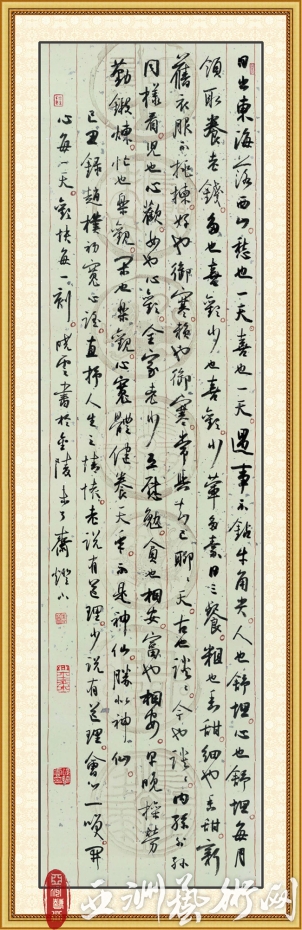 日出東海落西山愁也一天喜也一天遇事不鉆牛角尖人也舒坦心也舒坦每月
領取養老錢多也喜歡少也喜歡少葷多素日三餐粗也香甜細也香甜新
舊衣服不挑揀好也御寒孬也御寒常與知己聊聊天古也談談今也談談内孫外孫
同樣看兒也心歡女也心歡全家老少互慰勉貧也相安富也相安早晚操勞
勤鍛煉忙也樂觀閑也樂觀心寬體健養天年不是神仙勝似神仙
己丑錄趙樸初寬心謠直抒人生之情懷老說有道理少說有道理會心一頌開
心每一天歡快每一刻曉雲書於金陵未了齋燈下
亞洲藝術网